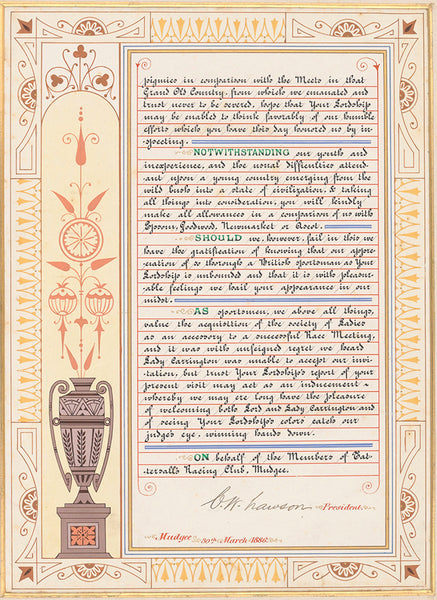 pigmies in comparison with the Meets in that
Grand Old Country, from which we emanated and
trust never to be severed, hope that Your Lordship
may be enabled to think favorably of our humble
efforts which you have this day honored us by in-
-specting.
NOTWITHSTANDING our youth and
inexperience, and the usual difficulties attend-
ant upon a young country emerging from the
wild bush into a state of civilization, & taking
all things into consideration, you will kindly
make all allowances in a comparison of us with
Epsom, Goodwood, Newmarket or Ascot.
SHOULD we, however, fail in this we
have the gratification of knowing that our appre-
-ciation of so thorough a British sportsman as Your
Lordship is unbounded and that it is with pleasur-
-able feelings we hail your appearance in our
midst.
AS sportsmen, we above all things,
value the acquisition of the society of Ladies
as an accessory to a successful Race Meeting,
and it was with unfeigned regret we heard
Lady Carrington was unable to accept our invi-
-tation, but trust Your Lordship's report of your
present visit may act as an inducement
whereby we may ere long have the pleasure
of welcoming both Lord and Lady Carrington and
of seeing Your Lordship's colors catch our
judge's eye, winning hands down.
ON behalf of the Members of Tat-
-tersall's Racing Club, Mudgee.
C. W. Lawson President.
Mudgee 30th March 1886.